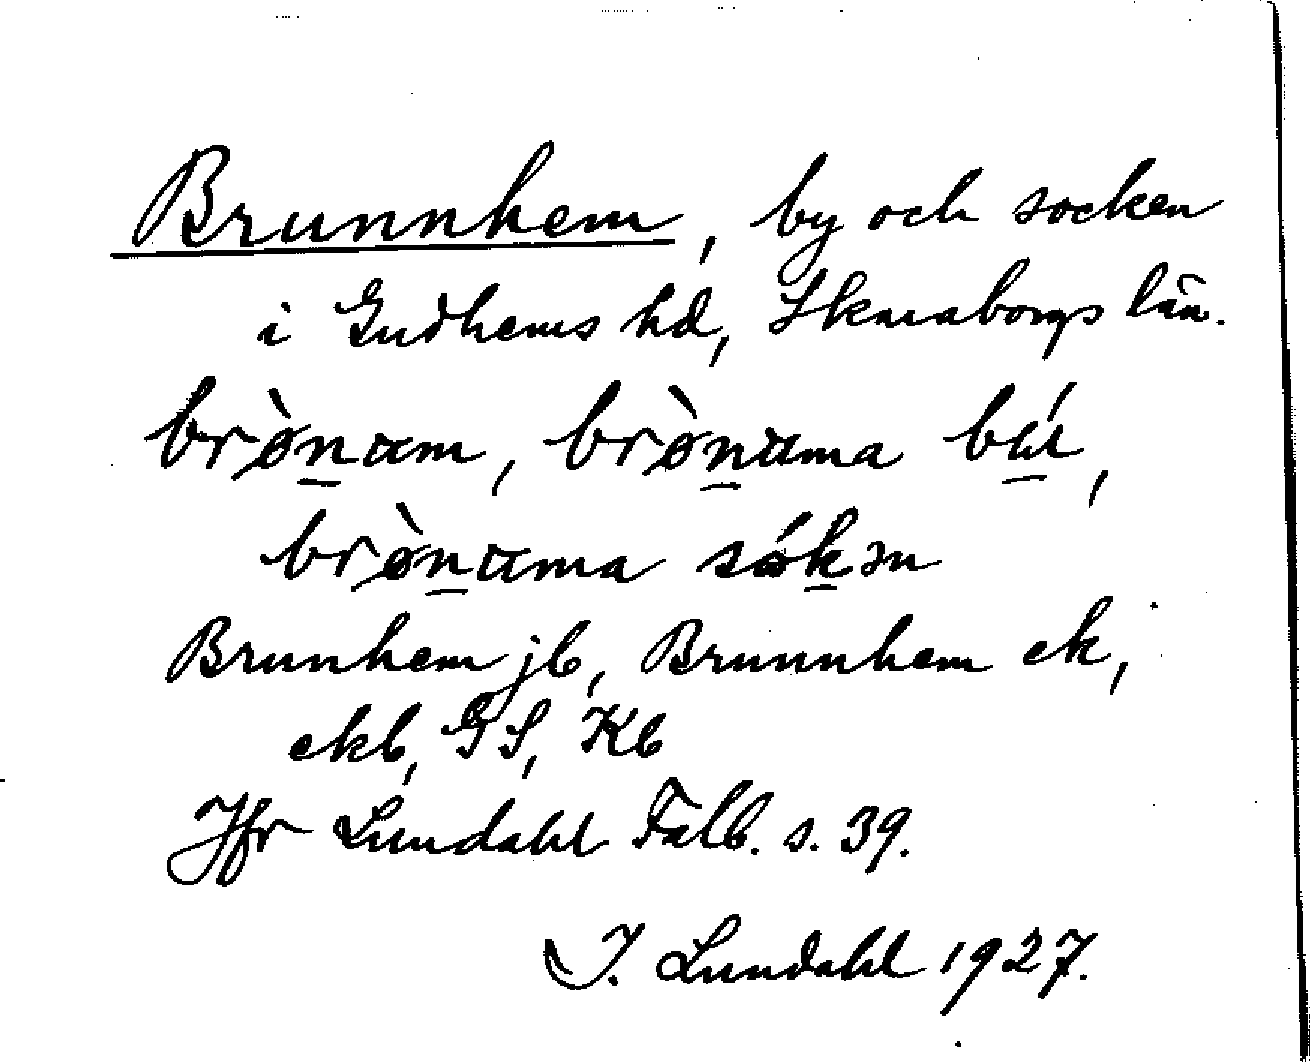 Brunnhem, by och socken
i Gudhems hd, Skaraborgs län.
brø̀n̲am, brø̀n̲ama
brø̀n̲ama sók̲ən
Brunhem jb, Brunnhem ek,
ekb, GS, Kb
Jfr Lundahl Falb. s. 39.
I. Lundahl 1927.